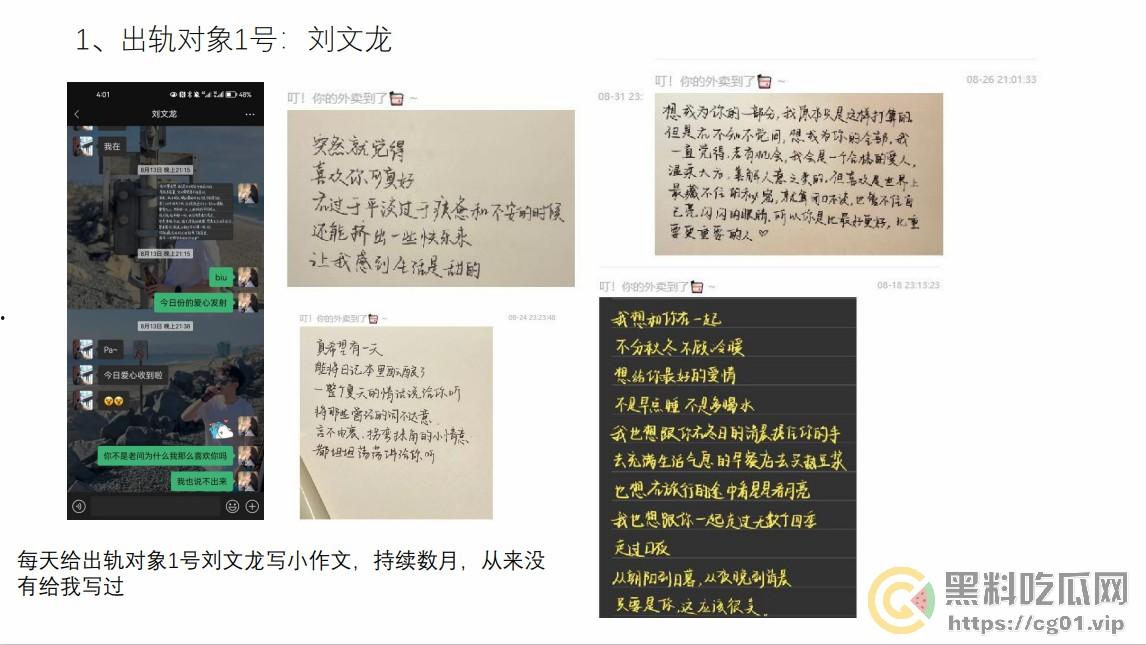 1、出轨对象1号：刘文龙
4:01
48%
刘文龙
我在
8月13日 晚上21:15
8月13日 晚上21:15
biu
今日份的爱心发射
8月13日 晚上21:38
Pa~
今日爱心收到啦
你不是老问为什么我那么喜欢你吗
我也说不出来
叮！你的外卖到了 ~
08-31 23:
突然就觉得
喜欢你可真好
在过于平淡过于疲惫和不安的时候
还能挤出一些快乐来
让我感到生活是甜的
叮！你的外卖到了 ~
08-24 23:23:48
真希望有一天
能将日记本里酝酿了
一整个夏天的情话说给你听
将那些曾经的词不达意
言不由衷、拐弯抹角的小情意
都坦坦荡荡讲给你听
叮！你的外卖到了 ~
08-26 21:01:33
想成为你的一部分，我原本只是这样打算的
但是在不知不觉间，想成为你的全部，我
一直觉得，若有机会，我会是一个合格的爱人，
温柔大方，善解人意之类的，但喜欢是世界上
最藏不住的秘密，就算闭口不谈，也藏不住自
己亮闪闪的眼睛，所以你是比最好更好，比重
要更重要的人♡
叮！你的外卖到了 ~
08-18 23:13:23
我想和你在一起
不分秋冬 不顾冷暖
想给你最好的爱情
不是早点睡 不是多喝水
我也想跟你在冬日的清晨搂住你的手
去充满生活气息的早餐店去买截豆浆
也想在旅行的途中看星星看月亮
我也想跟你一起走过无数个四季
走过日夜
从朝阳到日暮，从夜晚到清晨
只要是你，这应该很美。
每天给出轨对象1号刘文龙写小作文，持续数月，从来没
有给我写过
黑料吃瓜网
https://cg01.vip